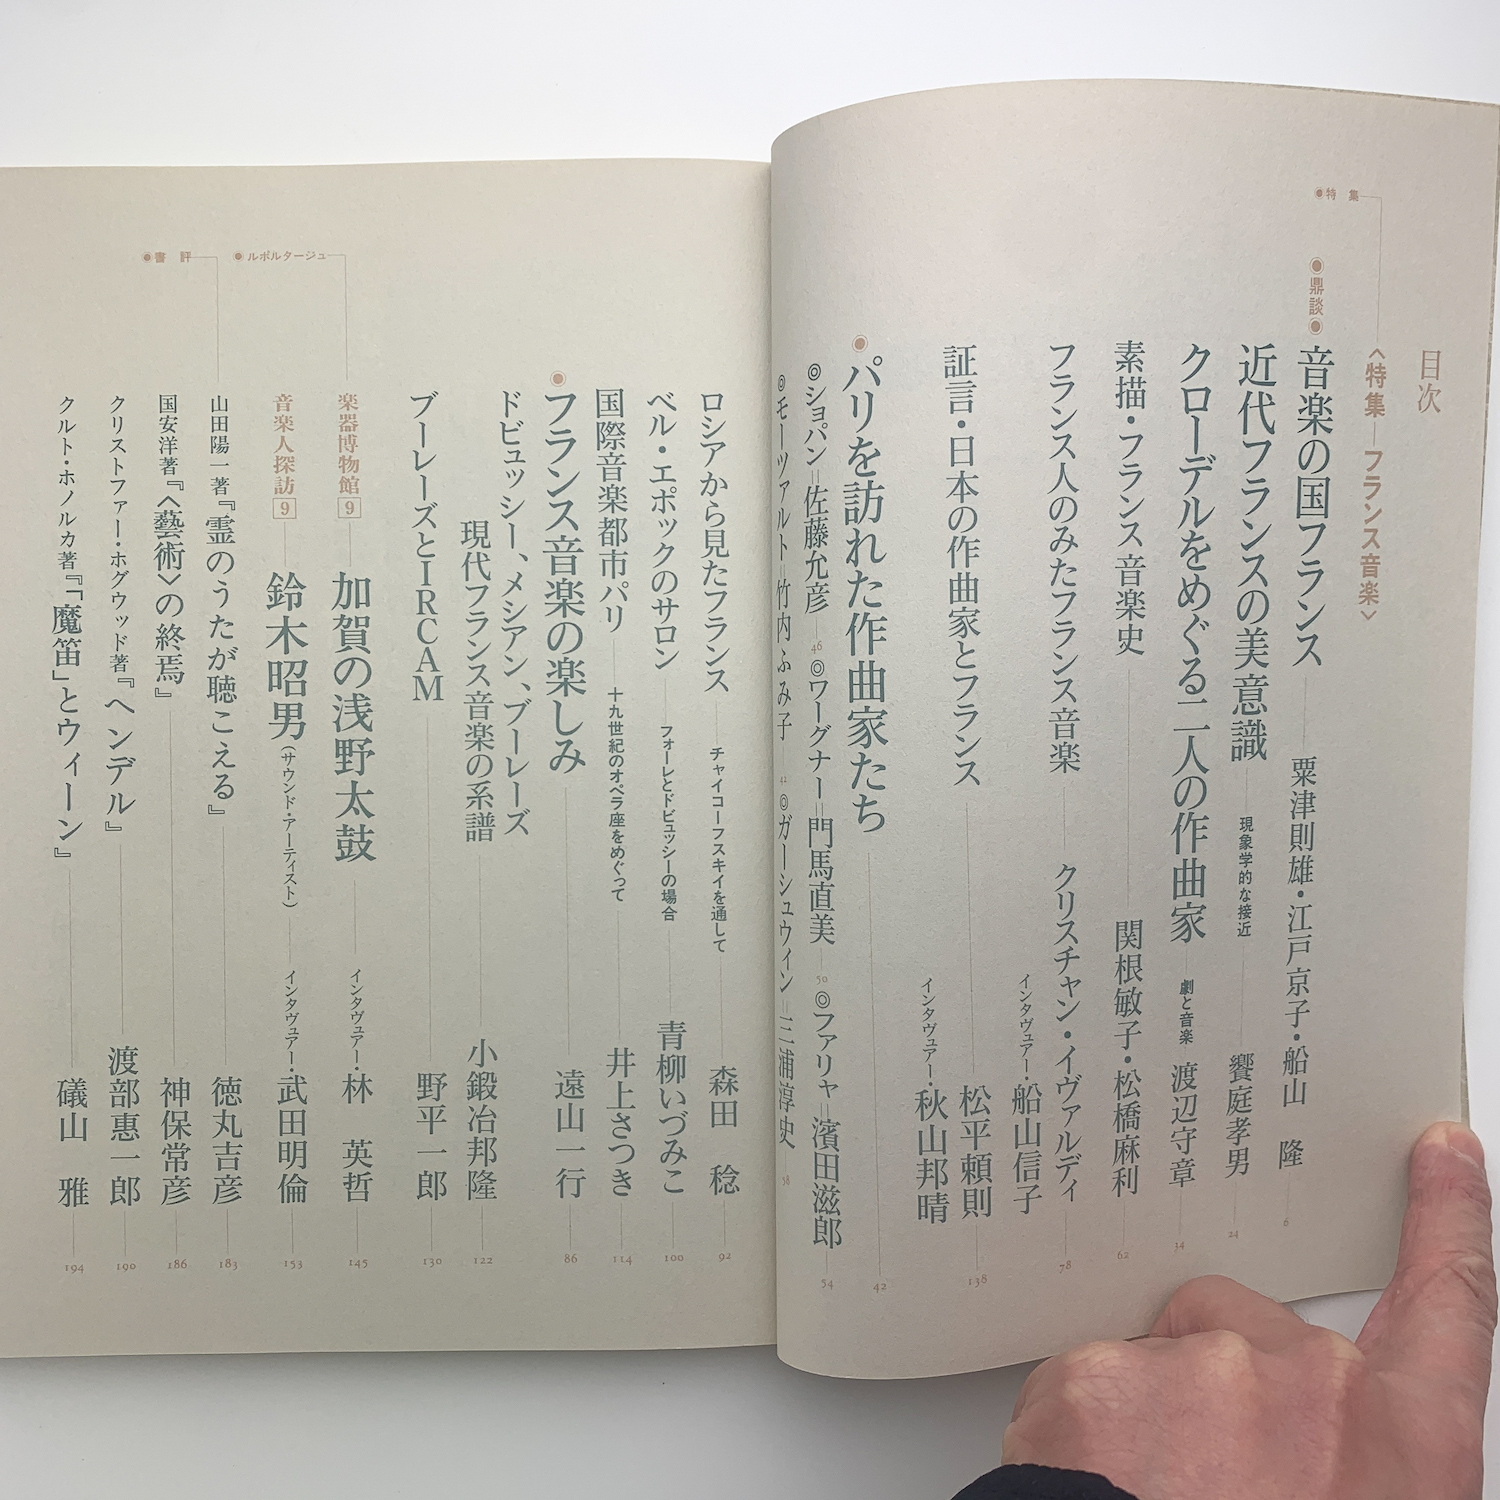 目次
●特集
〈特集―フランス音楽〉
●鼎談●
音楽の国フランス 粟津則雄・江戸京子・船山 隆 6
近代フランスの美意識 現象学的な接近 饗庭孝男 24
クローデルをめぐる二人の作曲家 劇と音楽 渡辺守章 34
素描・フランス音楽史 関根敏子・松橋麻利 62
フランス人のみたフランス音楽 クリスチャン・イヴァルディ 78
インタヴュアー・船山信子
証言・日本の作曲家とフランス 松平頼則 138
インタヴュアー・秋山邦晴
●パリを訪れた作曲家たち 42
◎ショパン=佐藤允彦 46 ◎ワーグナー=門馬直美 50 ◎ファリャ=濱田滋郎 54
◎モーツァルト=竹内ふみ子 42 ◎ガーシュウィン=三浦淳史 58
ロシアから見たフランス チャイコーフスキイを通して 森田 稔 92
ベル・エポックのサロン フォーレとドビュッシーの場合 青柳いづみこ 100
国際音楽都市パリ 十九世紀のオペラ座をめぐって 井上さつき 114
●フランス音楽の楽しみ 遠山一行 86
ドビュッシー、メシアン、ブーレーズ
現代フランス音楽の系譜 小鍛冶邦隆 122
ブーレーズとIRCAM 野平一郎 130
●ルポルタージュ
楽器博物館9 加賀の浅野太鼓 インタヴュアー・林 英哲 145
音楽人探訪9 鈴木昭男(サウンド・アーティスト) インタヴュアー・武田明倫 153
●書評
山田陽一著『霊のうたが聴こえる』 徳丸吉彦 183
国安洋著『〈藝術〉の終焉』 神保常彦 186
クリストファー・ホグウッド著『ヘンデル』 渡部惠一郎 190
クルト・ホノルカ著『「魔笛」とウィーン』 礒山 雅 194